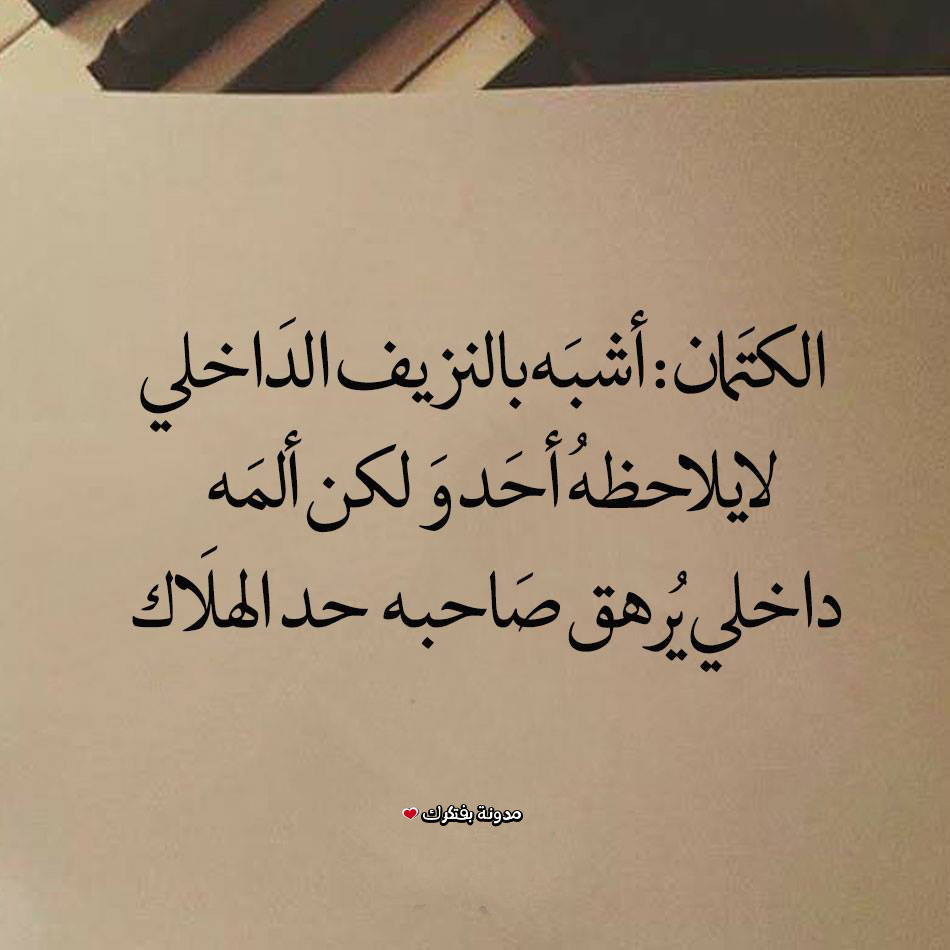 الكتَمان: أشبَه بالنزيف الدَاخلي
لايلاحظهُ أحَد وَ لكن ألمَه
داخلي يُرهق صَاحبه حد الهلَاك
مدونة بفتكرك ❤